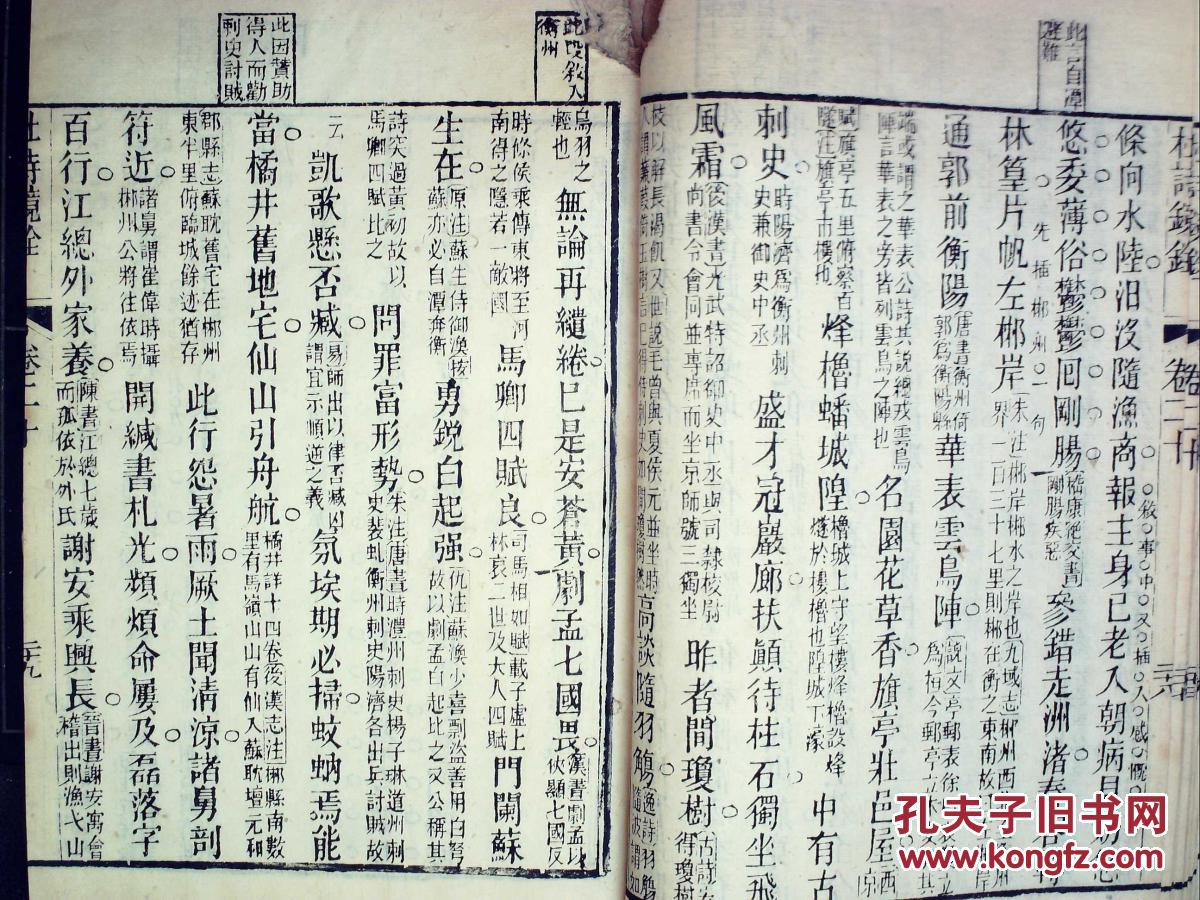 杜詩鏡銓
卷二十
此言自潭避難
條向水陸汨沒隨漁商報主身已老入朝病見
悠悠委薄俗鬱鬱回剛腸嵇康絕交書剛腸疾惡參錯走洲渚舂容
林篁片帆左郴岸朱注郴岸郴水之岸也九域志郴州西界一百三十七里則郴在衡之東南故
先插郴州一句
通郭前衡陽唐書衡州倚郭爲衡陽縣華表雲鳥陣說文亭郵表徐爲桓今郵亭立木
端或謂之華表公詩其說總戎雲鳥陣言華表之旁皆列雲鳥之陣也名園花草香旗亭壯邑屋西京
賦旗亭五里俯察百隧注旗亭市樓也烽櫓蟠城隍櫓城上守望樓烽櫓設烽燧於樓櫓也隍城下濠中有古
刺史時陽濟爲衡州刺史兼御史中丞盛才冠巖廊扶顛待柱石獨坐飛
風霜後漢書光武特詔御史中丞與司隸校尉尚書令會同並專席而坐京師號三獨坐昨者間瓊樹古詩安得瓊樹
枝以解長渴飢又世說毛曾與夏侯元並坐時高談隨羽觴逸詩羽觴隨波
此段敘入衡州
烏羽之輕也無論再繾綣已是安蒼黃劇孟七國畏漢書劇孟以俠顯七國反
時條侯乘傳東將至河南得之隱若一敵國馬卿四賦良司馬相如賦載子虛上林哀二世及大人四賦門闌蘇
生在原注蘇生侍御渙按蘇亦必自潭奔衡勇銳白起强仇注蘇渙少喜剽盜善用白弩故以劇孟白起比之又公稱其
詩突過黃初故以馬卿四賦比之問罪富形勢朱注唐書時澧州刺史楊子琳道州刺史裴虬衡州刺史陽濟各出兵討賊故
云凱歌懸否臧易師出以律否臧凶謂宜示順逆之義氛埃期必掃蚊蚋焉能
此因贊助得人而勸刺史討賊
當橘井舊地宅仙山引舟航橘井詳十四卷後漢志注郴縣南數里有馬嶺山山有仙人蘇耽壇元和
郡縣志蘇耽舊宅在郴州東半里俯臨城餘迹猶存此行怨暑雨厥土聞清涼諸舅剖
符近諸舅謂崔偉時攝郴州公將往依焉開緘書札光頻煩命屢及磊落字
百行江總外家養陳書江總七歲而孤依於外氏謝安乘興長晉書謝安寓會稽出則漁弋山
杜詩鏡銓
卷二十
二十九
孔夫子旧书网
www.kongfz.com